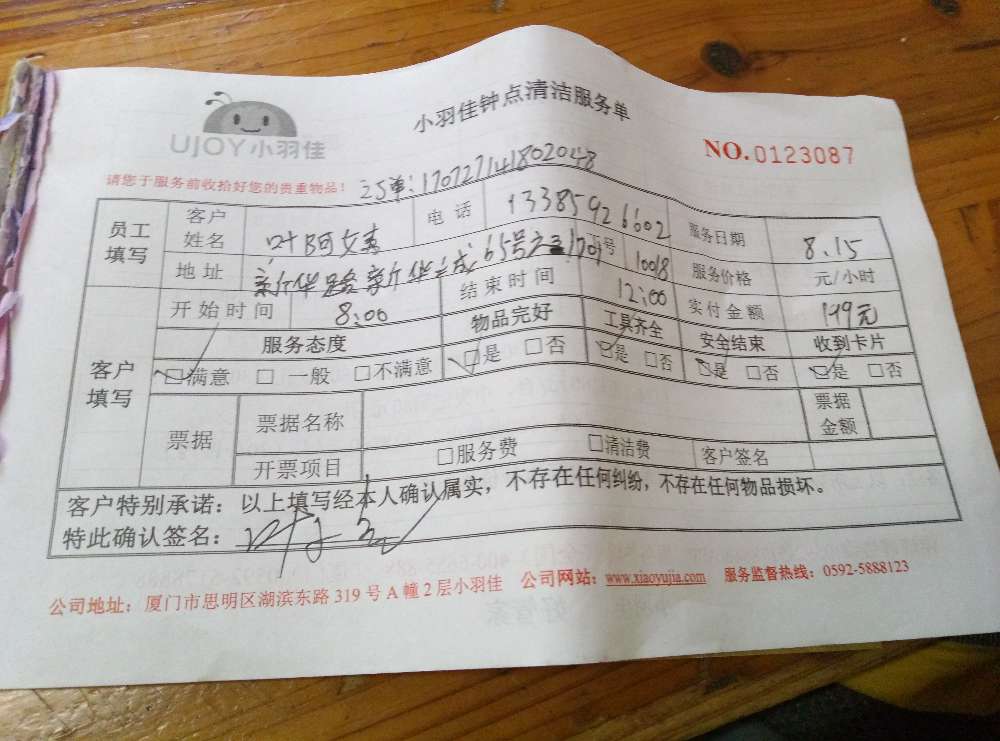 小羽佳钟点清洁服务单
UJOY小羽佳
NO.0123087
请您于服务前收拾好您的贵重物品！
单:170727141802048
员工填写 客户姓名 叶阿 电话 13385926602 服务日期 8.15
地址 新华路新华 65号 1701 号 10018 服务价格 元/小时
客户填写 开始时间 8:00 结束时间 12:00 实付金额 199元
服务态度 物品完好 工具齐全 安全结束 收到卡片
□满意 □一般 □不满意 □是 □否 □是 □否 □是 □否 □是 □否
票据 票据名称 票据金额
开票项目 □服务费 □清洁费 客户签名
客户特别承诺：以上填写经本人确认属实，不存在任何纠纷，不存在任何物品损坏。
特此确认签名：叶
公司地址：厦门市思明区湖滨东路319号A幢2层小羽佳 公司网站：www.xiaoyujia.com 服务监督热线：0592-5888123